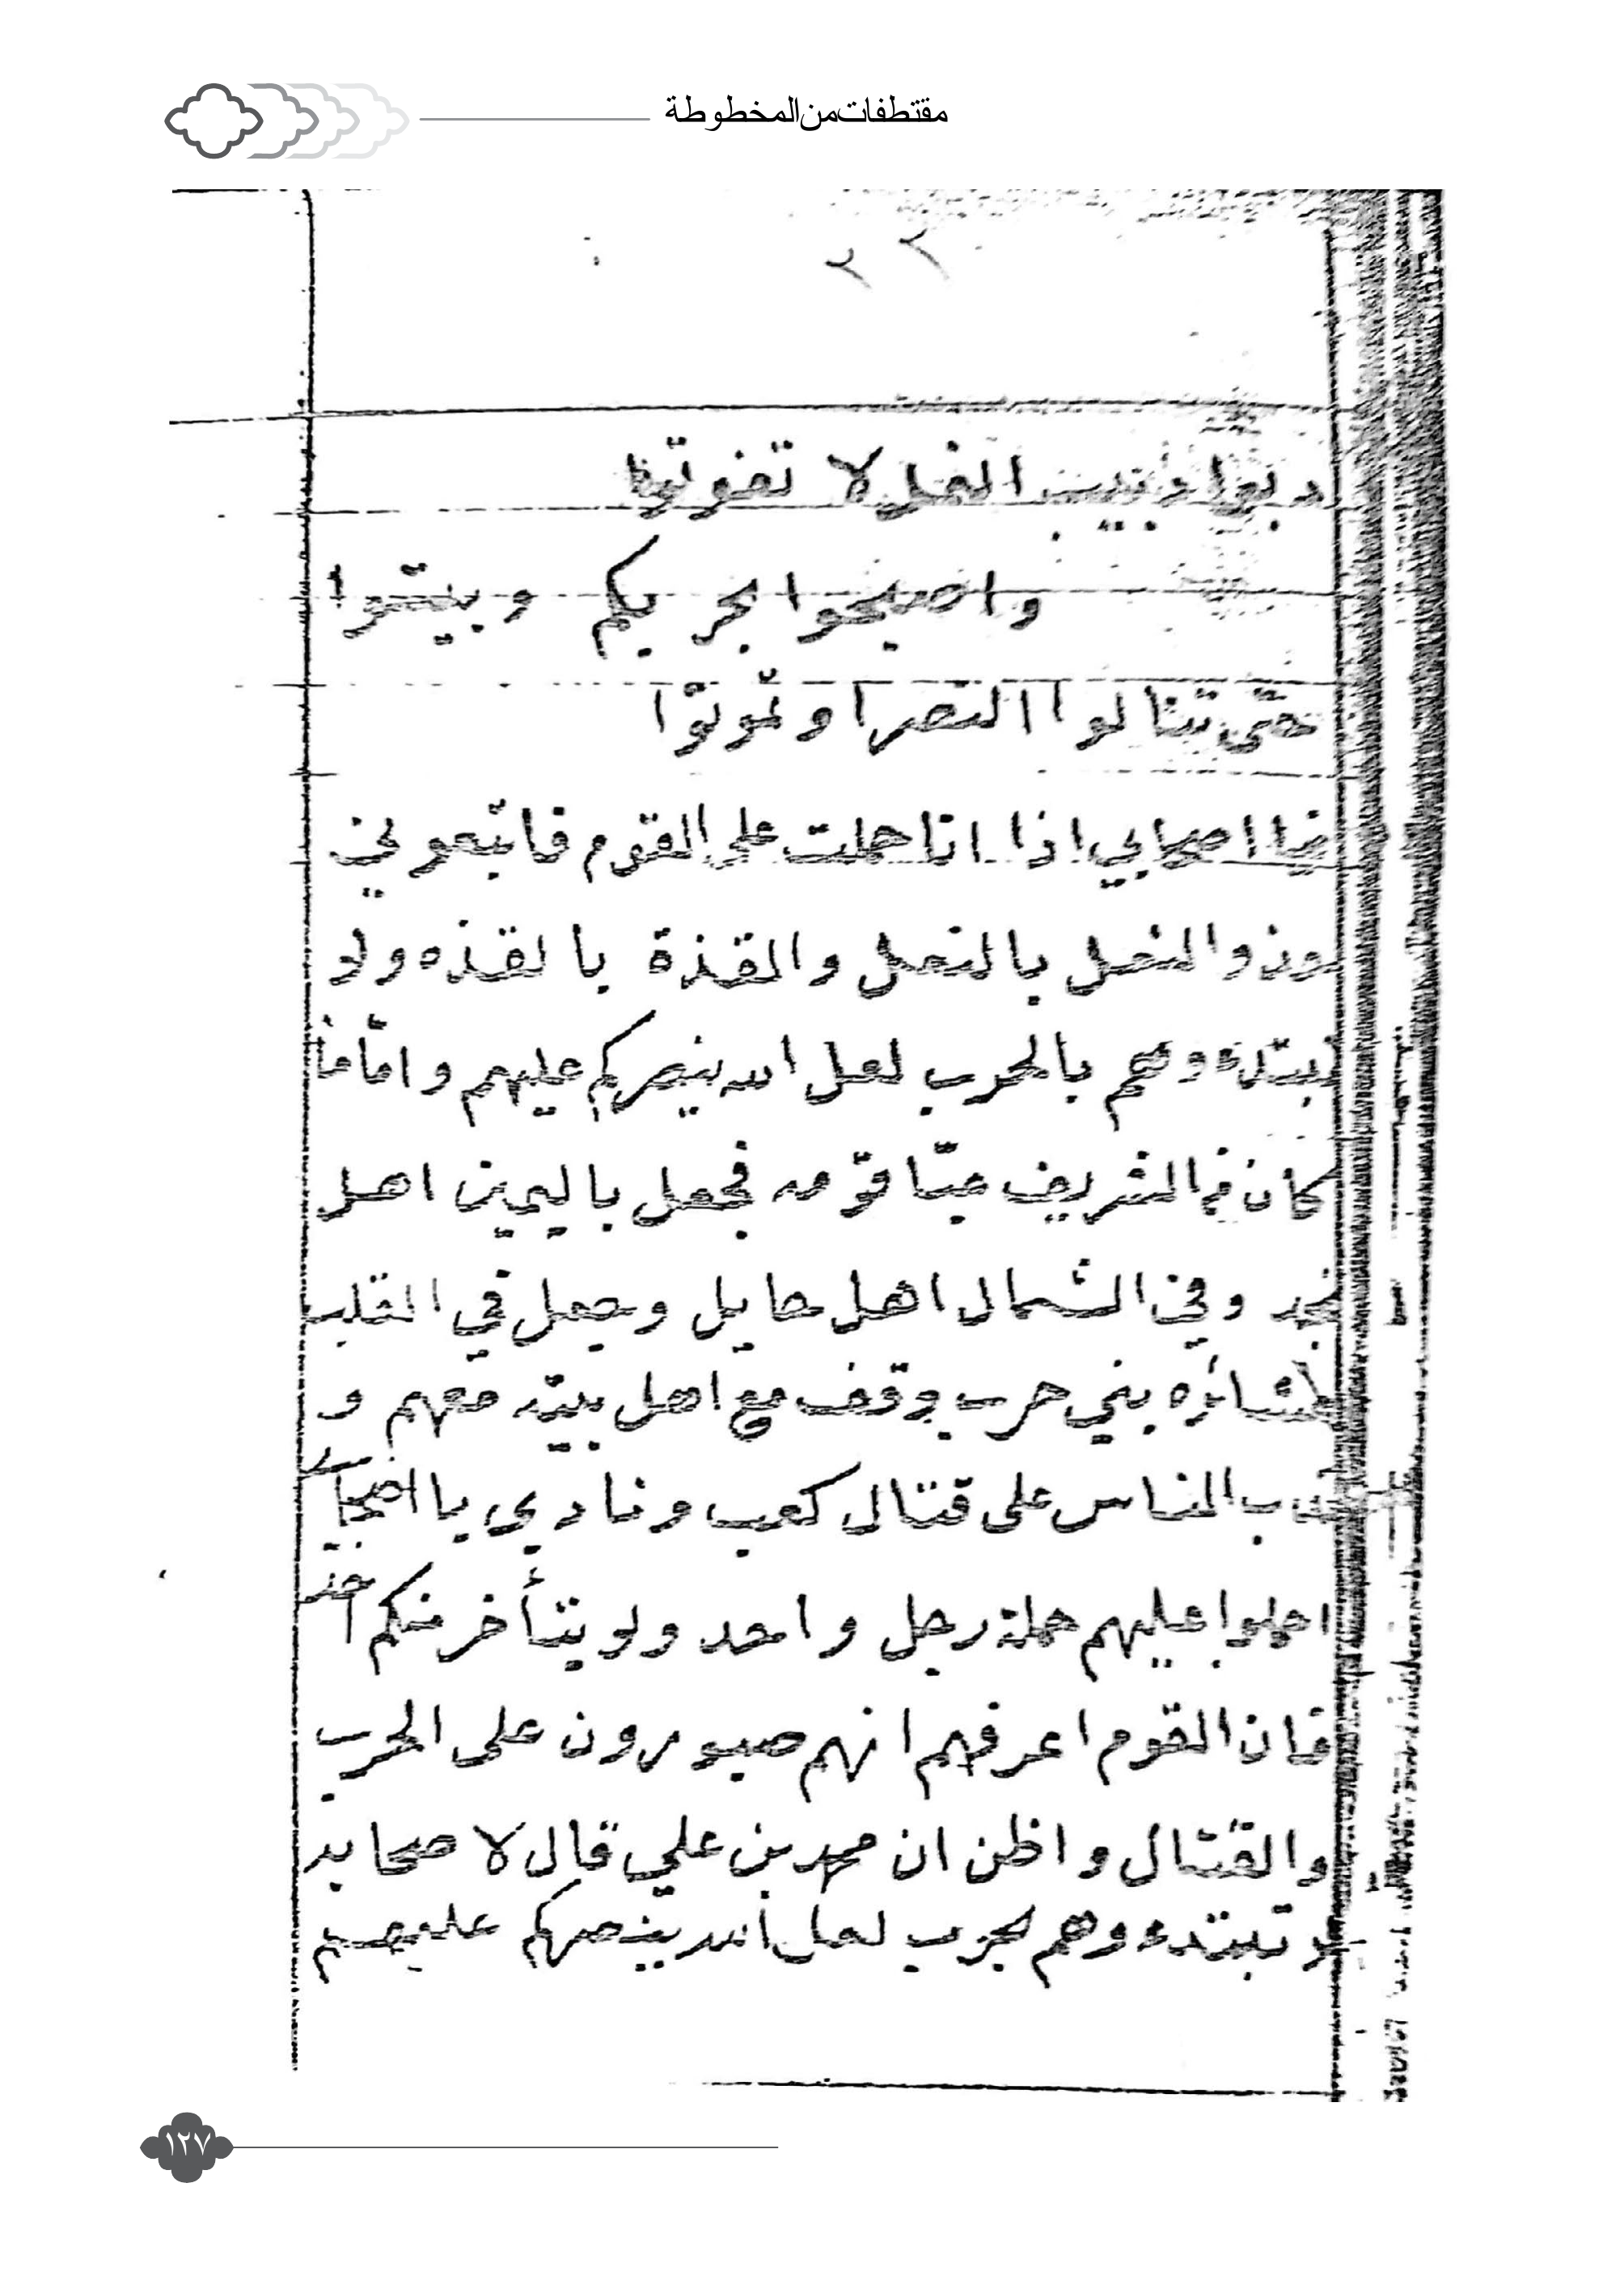 مقتطفات من المخطوطة
٢٢
دبوا دبيب النمل لا تفوتوا
واصبحوا بحربكم وبيتوا
حتى تنالوا النصر او تموتوا
يا اصحابي اذا انا حملت على القوم فاتبعوني
والنعل بالنعل والقذة بالقذه ولا
تبتدءوهم بالحرب لعل الله ينصركم عليهم واما ما
كان من الشريف عبّا قومه فجعل باليمين اهل
نجد وفي الشمال اهل حايل وجعل في القلب
عشائره بني حرب ووقف مع اهل بيته معهم و
ندب الناس على قتال كعب ونادى يا اصحابي
احملوا عليهم حملة رجل واحد ولا يتأخر منكم احد
فان القوم اعرفهم انهم صبورون على الحرب
والقتال واظن ان محمد بن علي قال لاصحابه
لا تبتدءوهم بحرب لعل الله ينصركم عليهم
١٢٧